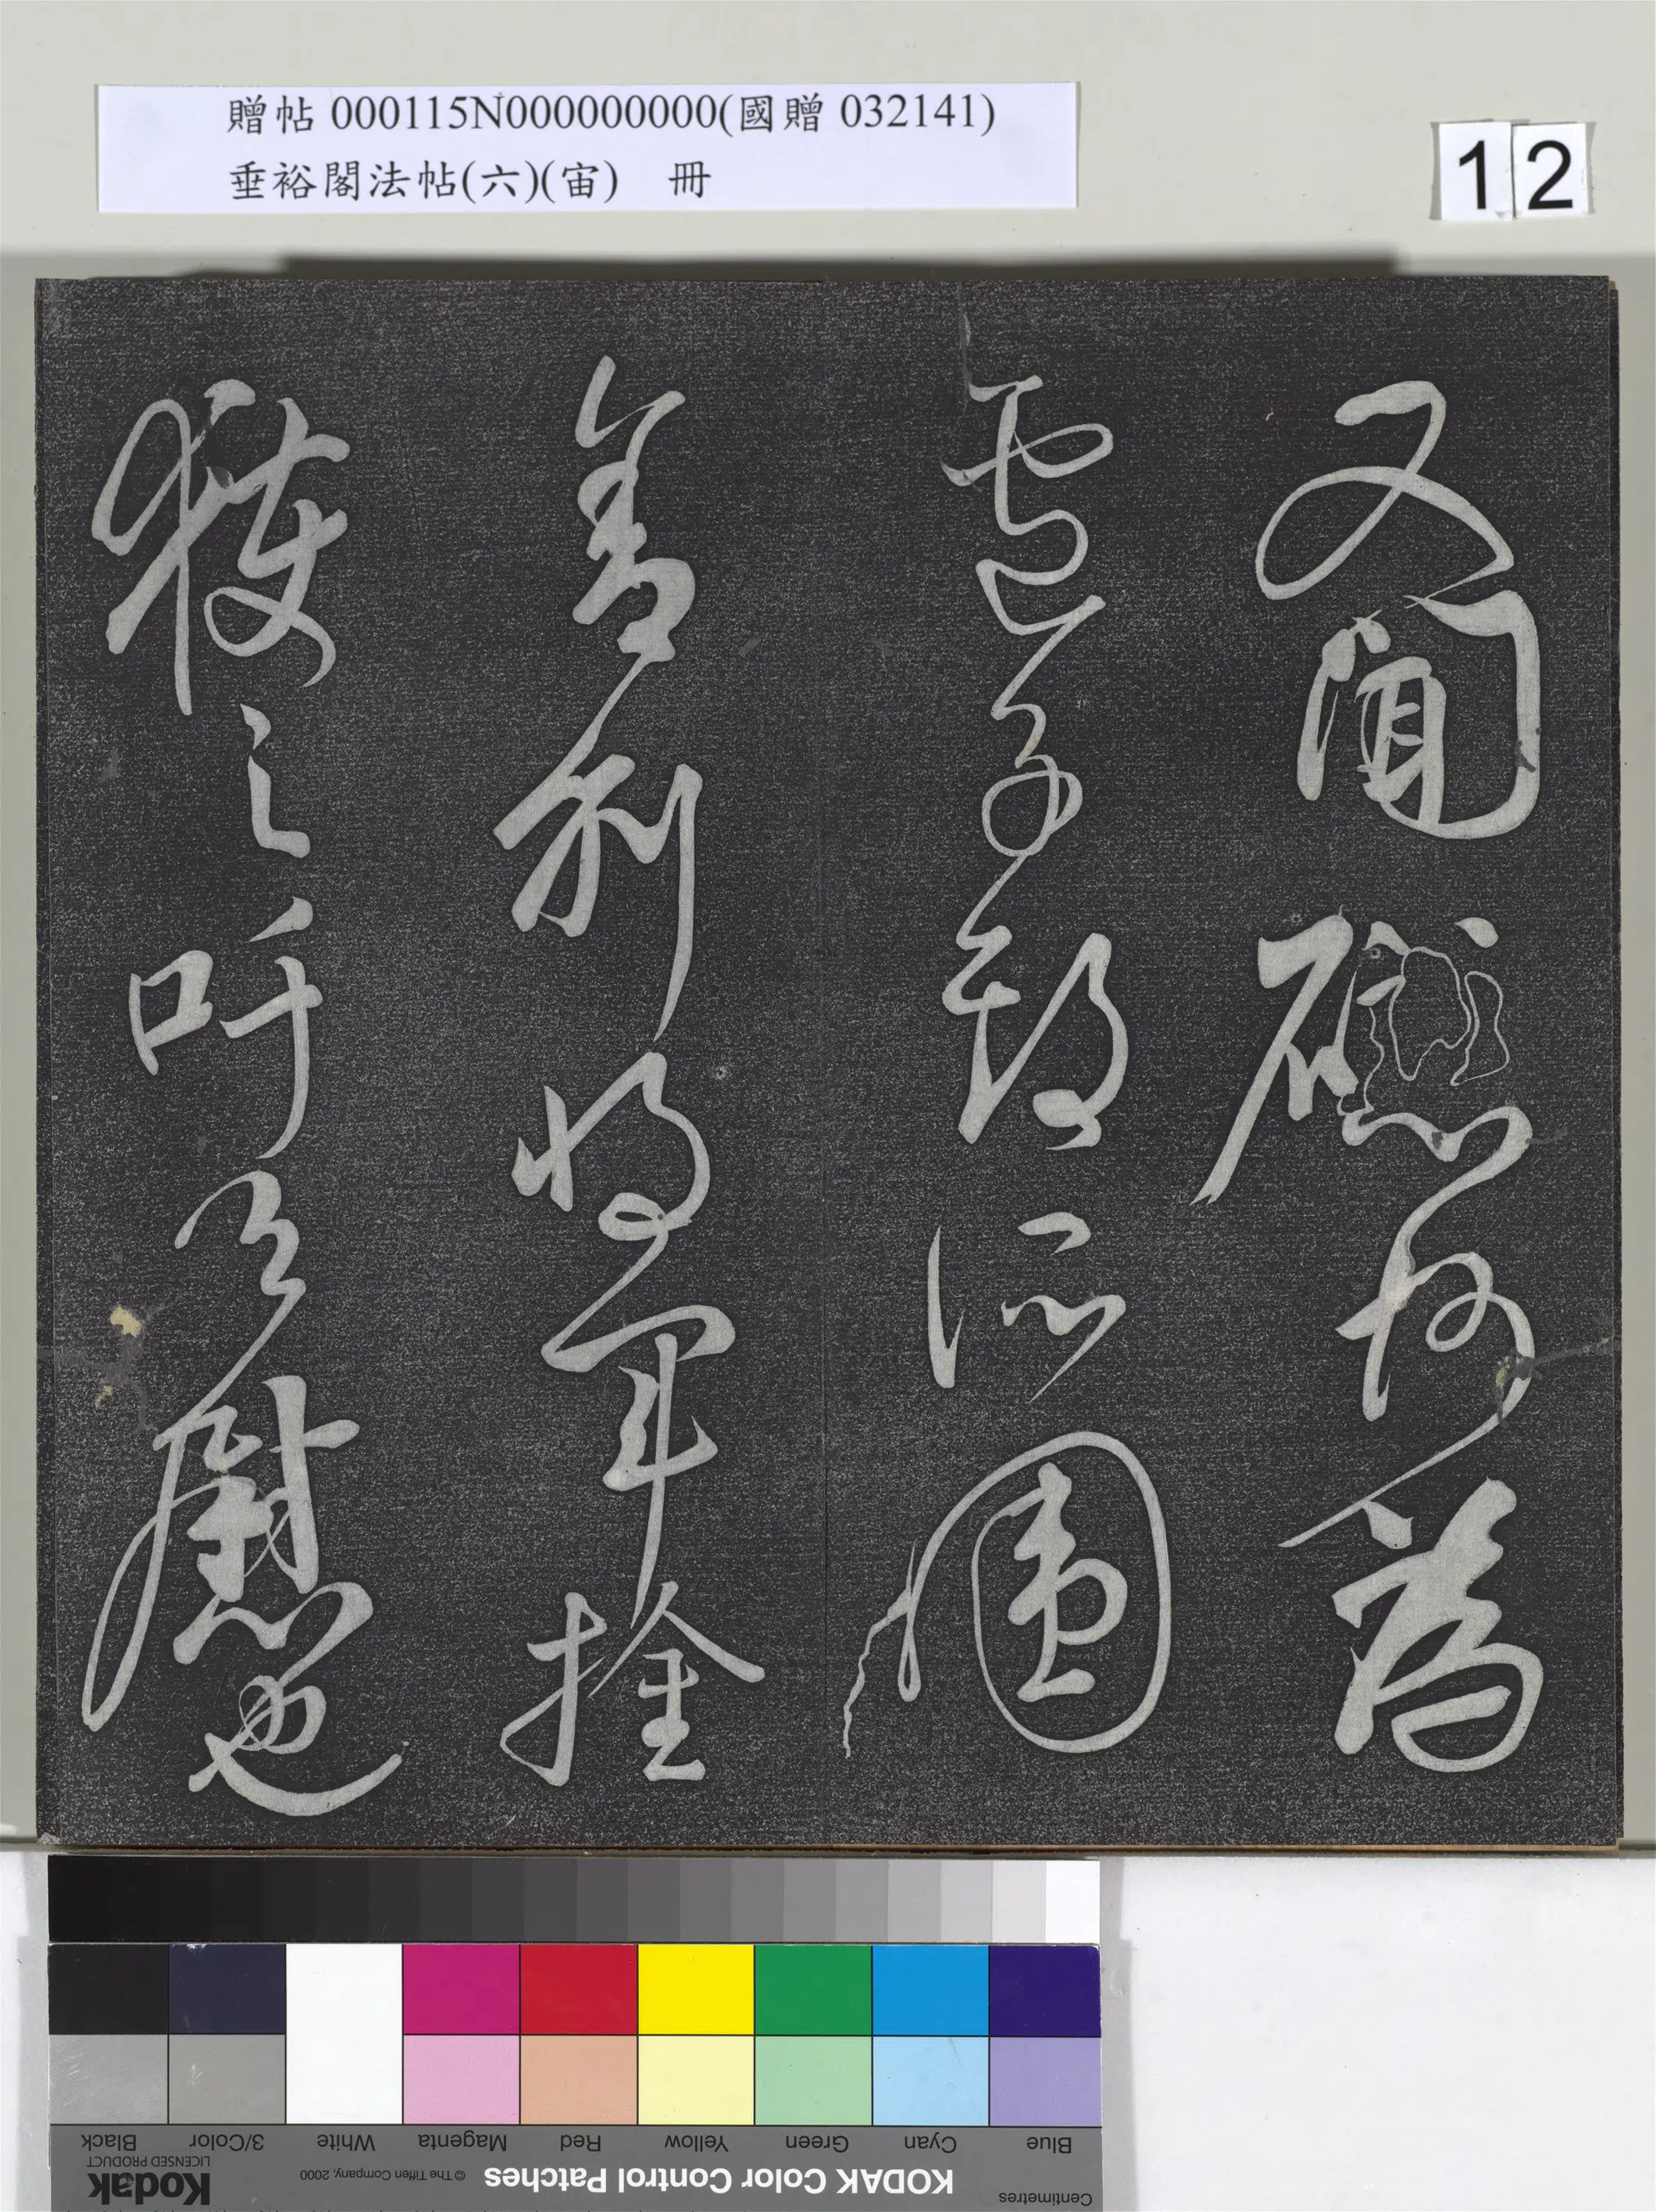 贈帖 000115N000000000(國贈 032141)
垂裕閣法帖(六)(宙) 冊
12
又聞礠州為
盧子期所圍
舍利將軍擒
獲之吁足慰也
Centimetres
Blue Cyan Green Yellow Red Magenta White 3/Color Black
KODAK Color Control Patches © The Tiffen Company, 2000 Kodak
LICENSED PRODUCT